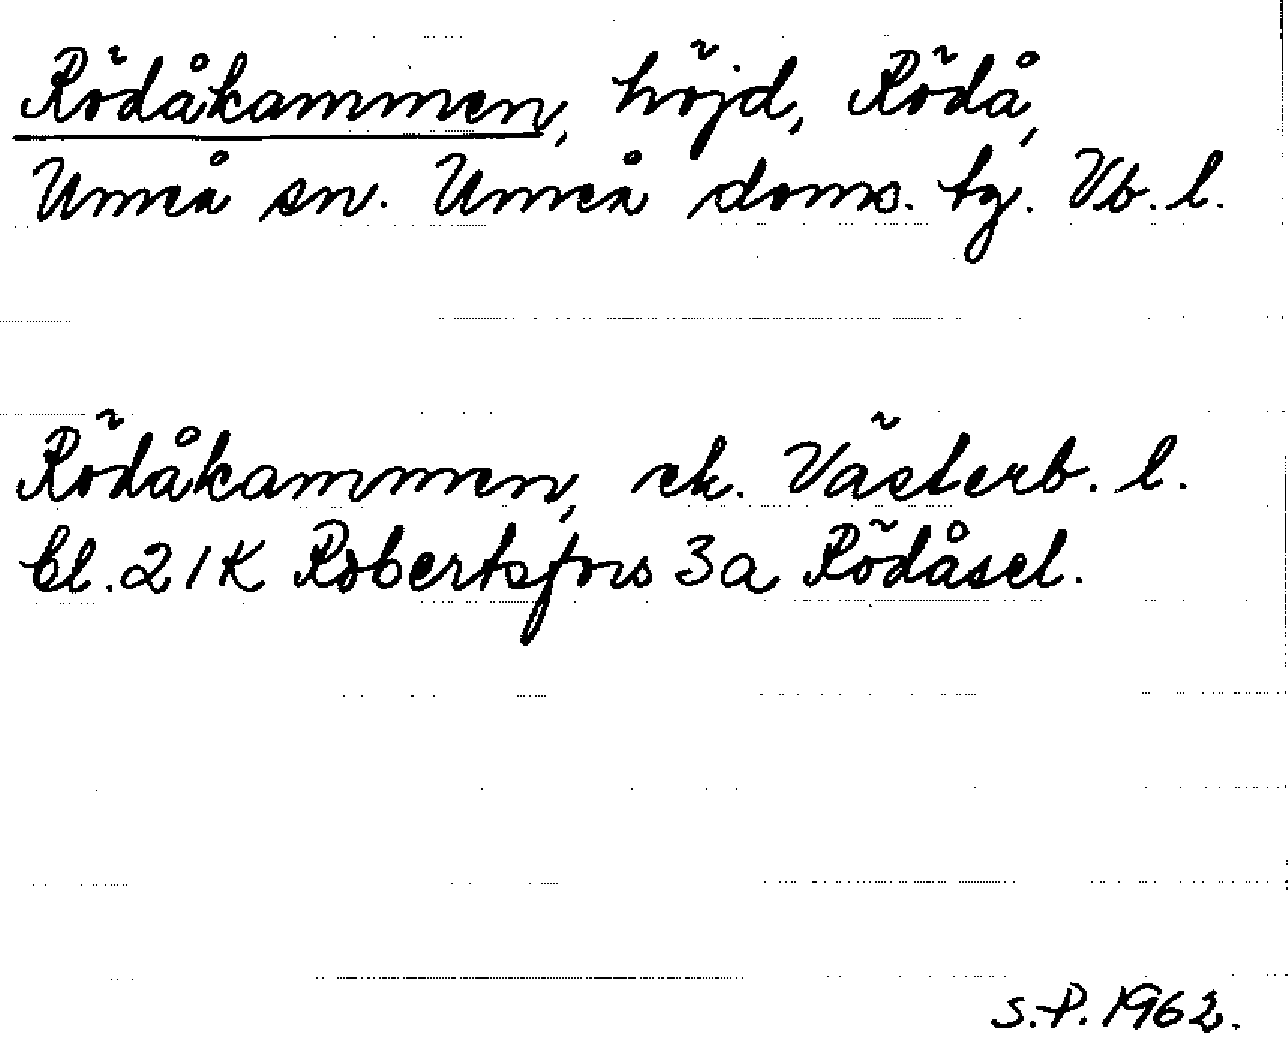 Rödåkammen, höjd, Rödå,
Umeå sn. Umeå doms. tg. Vb. l.
Rödåkammen, ek. Västerb. l.
bl. 21K Robertsfors 3a Rödåsel.
S.P. 1962.